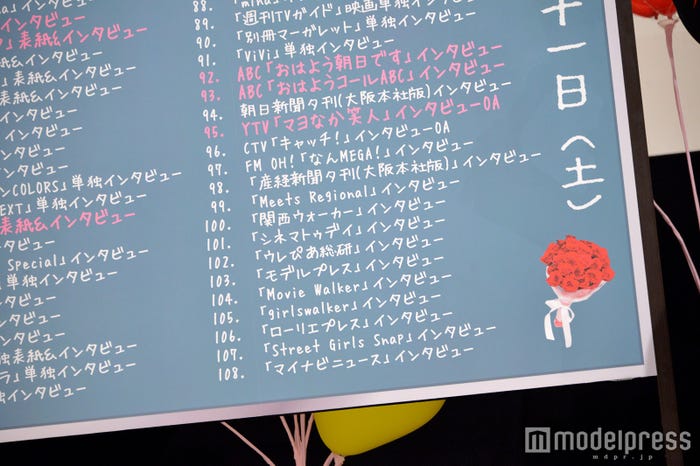 インタビュー
」表紙&インタビュー
紙&インタビュー
」表紙&インタビュー
表紙&インタビュー
インタビュー
インタビュー
ンタビュー
ンCOLORS」単独インタビュー
EXT」単独インタビュー
表紙&インタビュー
ンタビュー
Special」インタビュー
」単独インタビュー
ンタビュー
ンタビュー
インタビュー
独表紙&インタビュー
ラ」単独インタビュー
独インタビュー
88. 「mina」インタビュー
89. 「週刊TVガイド」映画単独インタビュー
90. 「別冊マーガレット」単独インタビュー
91. 「ViVi」単独インタビュー
92. ABC「おはよう朝日です」インタビュー
93. ABC「おはようコールABC」インタビュー
94. 朝日新聞夕刊(大阪本社版)インタビュー
95. YTV「マヨなか笑人」インタビューOA
96. CTV「キャッチ!」インタビューOA
97. FM OH!「なんMEGA!」インタビュー
98. 「産経新聞夕刊(大阪本社版)」インタビュー
99. 「Meets Regional」インタビュー
100. 「関西ウォーカー」インタビュー
101. 「シネマトゥデイ」インタビュー
102. 「ウレぴあ総研」インタビュー
103. 「モデルプレス」インタビュー
104. 「Movie Walker」インタビュー
105. 「girlswalker」インタビュー
106. 「ローリエプレス」インタビュー
107. 「Street Girls Snap」インタビュー
108. 「マイナビニュース」インタビュー
十一日(土)
modelpress
mdpr.jp